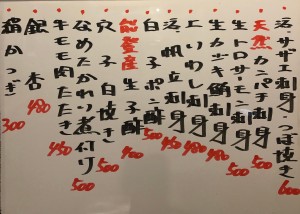 活サザエ刺身・つぼ抜き 600
天然カンパチ刺身 500
生トロサーモン刺身 500
生カツオ刺身 480
上いわし刺身 480
活帆立刺身 450
白子ポン酢 500
能登産生子酢 400
穴子白抜き 500
なめたかれい煮付け 500
牛モモ肉たたき 450
銀杏 480
300